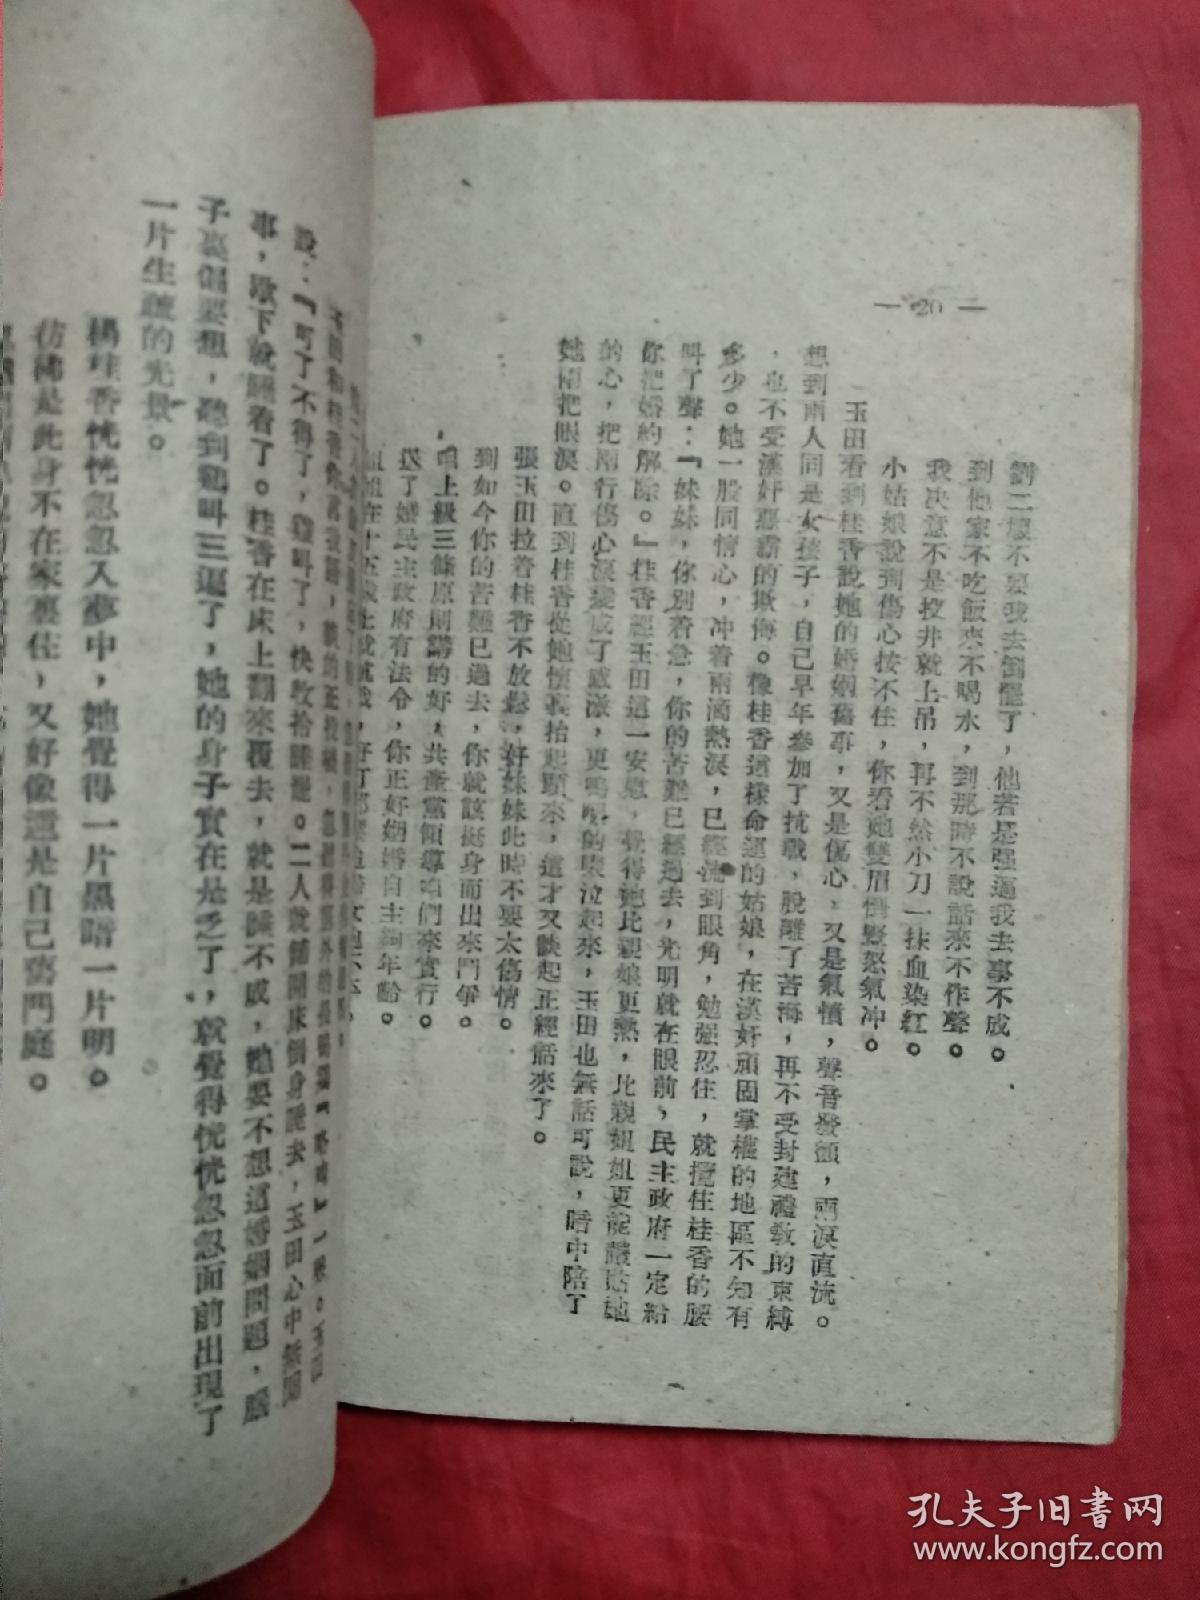 — 20 —
劉二壞不要我去倒罷了，他若是强逼我去事不成。
到他家不吃飯來不喝水，到那時不說話來不作聲。
我决意不是投井就上吊，再不然小刀一抹血染紅。
小姑娘說到傷心按不住，你看她雙眉倒竪怒氣冲。
玉田看到桂香說她的婚姻舊事，又是傷心，又是氣憤，聲音發顫，兩淚直流。
想到兩人同是女孩子，自己早年参加了抗戰，脫離了苦海，再不受封建禮教的束縛
，也不受漢奸惡霸的欺侮。像桂香這樣命運的姑娘，在漢奸頑固掌權的地區不知有
多少。她一股同情心，冲着兩滴熱淚，已經流到眼角，勉强忍住，就攬住桂香的腰
叫了聲：『妹妹，你別着急，你的苦難已經過去，光明就在眼前，民主政府一定給
你把婚約解除。』桂香經玉田這一安慰，覺得她比親娘更熱，比親姐姐更能體貼她
的心，把兩行傷心淚變成了感激，更嗚嗚的哭泣起來，玉田也無話可說，暗中陪了
她兩把眼淚。直到桂香從她懷裏抬起頭來，這才又談起正經話來了。
張玉田拉着桂香不放鬆，好妹妹此時不要太傷情。
到如今你的苦難已過去，你就該挺身而出來鬥爭。
咱上級三條原則講的好，共產黨領導咱們來實行。
送了婚民主政府有法令，你正好婚姻自主夠年齡。
說：『可了不得了，雞叫了，快收拾睡罷。』二人就鋪開床倒身睡去，玉田心中無閒
事，歇下就睡着了。桂香在床上翻來覆去，就是睡不成，她要不想這婚姻問題，腦
子裏偏要想，聽到雞叫三遍了，她的身子實在是乏了，就覺得恍恍忽忽面前出現了
一片生疏的光景。
楊桂香恍恍忽忽入夢中，她覺得一片黑暗一片明。
彷彿是此身不在家裏住，又好像還是自己舊門庭。
孔夫子旧书网
www.kongfz.com